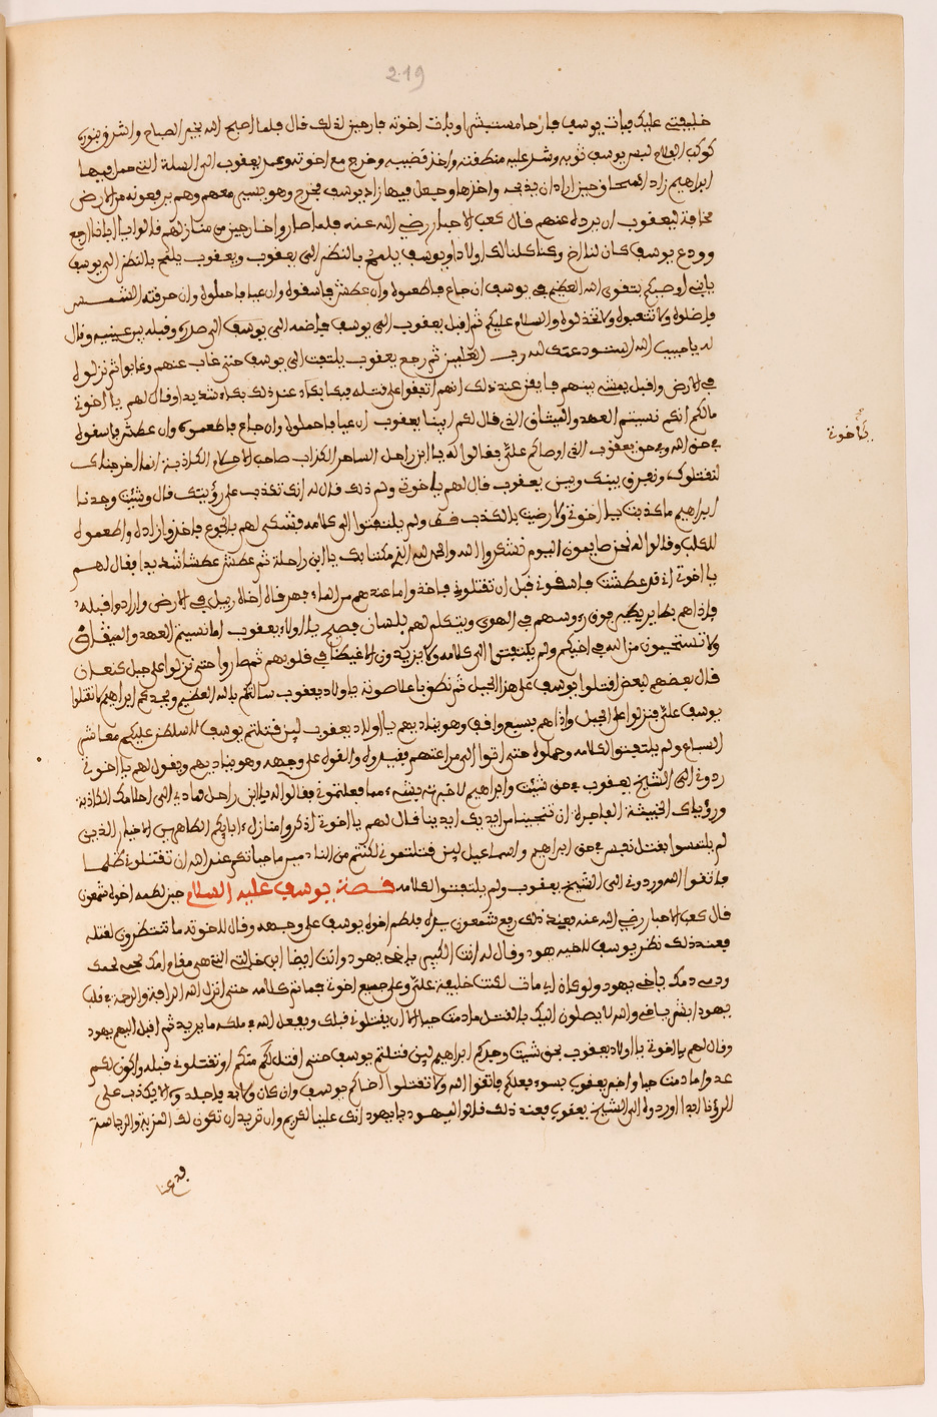 219
خليفتي عليك فبات يوسف فارحا مستبشرا وباتت اخوته فارحين لذلك قال فلما اصبح الله بخير الصباح واشرق بنوره
كوكب الفلاح لبس يوسف ثوبه وشد عليه منطقته واخذ قضيبه وخرج مع اخوته وعمد يعقوب الى السلة التي حمل فيها
ابراهيم زاد اسحاق حين اراد ان يذبحه واخذها وجعل فيها زاد يوسف فخرج وهو يمشي معهم وهم يرفعونه من الارض
مخافة ليعقوب ان يرده عنهم قال كعب الاحبار رضي الله عنه فلما صاروا خارجين من منازلهم قالوا يا ابانا ارجع
وودع يوسف كان لنا اخ وكنا كلنا لك اولاد ويوسف يلمح بالنظر الى يعقوب ويعقوب يلمح بالنظر الى يوسف
يا بني اوصيكم بتقوى الله العظيم في يوسف ان جاع فاطعموه وان عطش فاسقوه وان عيا فاحملوه وان حرقته الشمس
فاضلوه ولا تتعبوه ولا تخذلوه والسلام عليكم ثم اقبل يعقوب الى يوسف فاضمه الى صدره وقبله بين عينيه وقال
له يا حبيب الله استودعتك لله رب العلمين ثم رجع يعقوب يلتفت الى يوسف حتى غاب عنهم وغابوا ثم نزلوا
في الارض واقبل يمشي بينهم فايقن عند ذلك انهم اتفقوا على قتله فبكا بكاء عند ذلك بكاء شديدا وقال لهم يا اخوة
مالكم انكم نسيتم العهد والميثاق الذي قال لكم ابينا يعقوب ان عيا فاحملوه وان جاع فاطعموه وان عطش فاسقوه
يا اخوة
في حق الله وفي حق يعقوب الذي اوصاكم علي فقالوا له يا ابن راحل الساحر الكذاب صاحب الاحلام الكاذبة انما اخرجناك
لنقتلوك ونفرق بينك وبين يعقوب فقال لهم يا اخوتي ولم ذلك قالوا له انك تكذب على رؤيتك قال وشيث وجدنا
ابراهيم ما كذبت يا اخوة ولا رضيت بالكذب قط ولم يلتفتوا الى كلامه فشكى لهم بالجوع فاخذوا زاده واطعموه
للكلب وقالوا له نحن صايمون اليوم نشكروا الله والحمد لله الذي مكننا بك يا ابن راحلة ثم عطش عطشا شديدا فقال لهم
يا اخوة اني قد عطشت فاسقوني قبل ان تقتلوني
فاذا هم بطاير يطير فوق رءوسهم في الهوى ويتكلم لهم بلسان فصيح يا اولاد يعقوب اما نسيتم العهد والميثاق
ولا تستحيون من الله في اخيكم ولم يلتفتوا الى كلامه ولا يزيدون الا غيظا في قلوبهم ثم صاروا حتى نزلوا على جبل كنعان
قال بعضهم لبعض اقتلوا يوسف على هذا الجبل ثم نطق باعلا صوته يا اولاد يعقوب سالتكم بالله العظيم وبجدكم ابراهيم لا تقتلوا
يوسف علي فنزلوا على الجبل واذا هم بسبع واقف وهو يناديهم يا اولاد يعقوب لين قتلتم يوسف لاسلطن عليكم معاشر
السباع ولم يلتفتوا لكلامه وحملوه حتى اتوا الى مراعتهم فقيدوه والقوه على وجهه وهو يناديهم ويقول لهم يا اخوتي
ردوني الى الشيخ يعقوب في حق شيث وابراهيم لا خبرته بشيء مما فعلتموني فقالوا له يا ابن راحل فما دعى الى احلامك الكاذبة
ورؤياك الخبيثة الفاجرة ان تنجينا من ايديك ايدينا قال لهم يا اخوة اذكروا منازل ءابايكم الطاهرين الاخيار الذين
لم يلتمسوا بقتل نفس في حق ابراهيم واسماعيل لين قتلتموني لكنتم من النادمين ما حياتكم عند الله ان تقتلوني ظلما
فاتقوا الله وردوني الى الشيخ يعقوب ولم يلتفتوا لكلامه قصة يوسف عليه السلام حين لطمه اخوه شمعون
قال كعب الاحبار رضي الله عنه فعند ذلك رفع شمعون يده فلطم اخوه يوسف على وجهه وقال لاخوته ما تنتظرون لقتله
فعند ذلك نظر يوسف لاخيه يهود وقال له انت الكبير يا اخي يهود وانت ايضا ابن خالتي التي هي مقام امك لحمي لحمك
ودمي دمك يا اخي يهود ولو كان ابي مات لكنت خليفة علي وعلى جميع اخوتي فما تم كلامه حتى انزل الله الرافة والرحمة في قلب
يهود ابشر يا اخي والله لا يصلون اليك بالقتل ما دمت حيا الا ان يقتلوني قبلك ويفعل الله في ملكه ما يريد ثم اقبل اليهم يهود
وقال لهم يا اخوتي يا اولاد يعقوب بحق شيث وجدكم ابراهيم لين قتلتم يوسف حتى اقتل لكم منكم او تقتلوني قبله واكون لكم
عدوا ما دمت حيا واخبر يعقوب بسوء فعلكم فاتقوا الله ولا تقتلوا اخاكم يوسف وان كان ولابد
الرؤيا ابدا اوردوه الى الشيخ يعقوب فعند ذلك قالوا ليهود يا يهود انك علينا لكريم وان تريد ان تكون لك المزية والرياسة